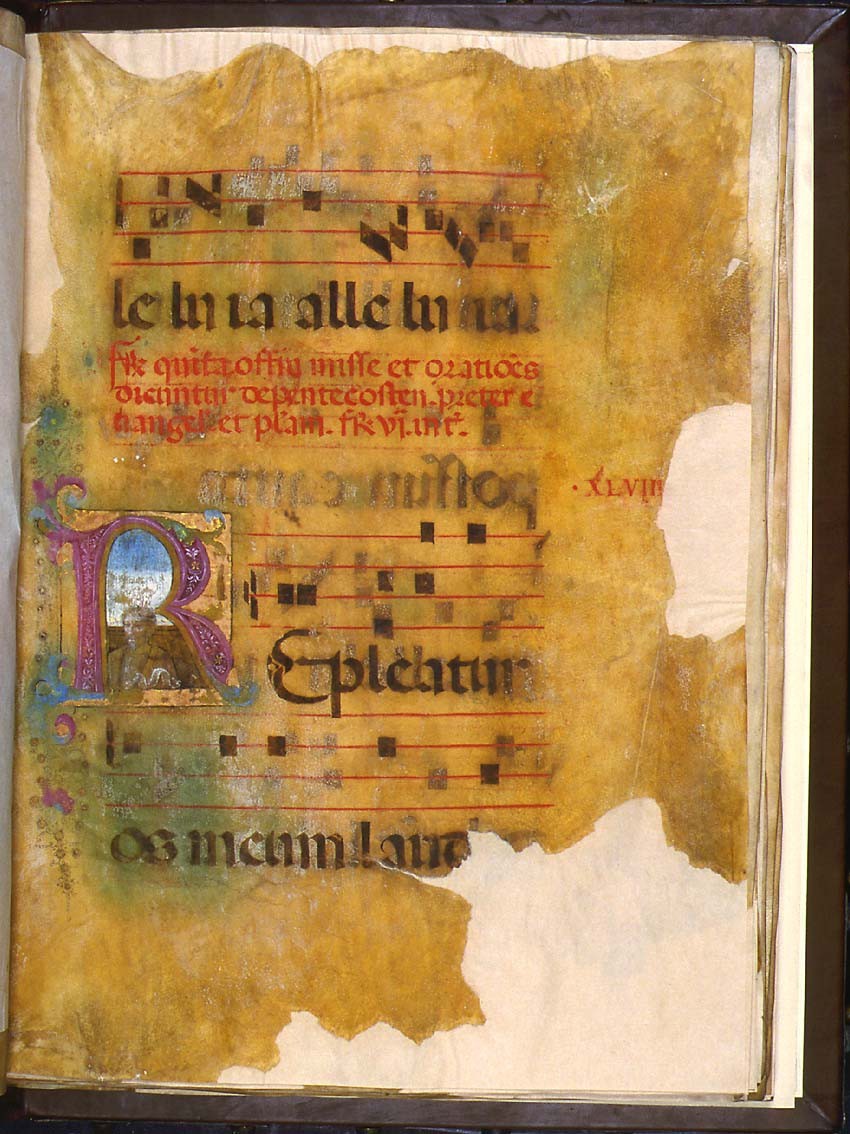 le lu ia alle lu
quīta offiū misse et oratiōēs
dicuntur de pentecosten. preter e
uangel. et pl̄am. fr̄ vı̄. int̄.
· XLVIII
REpleatur
os meum laud